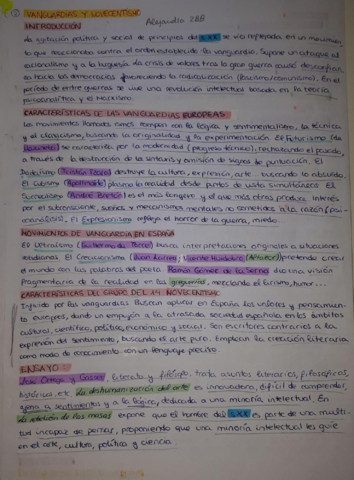 VANGUARDIAS Y NOVECENTISMO
Alejandra 2BB
INTRODUCCIÓN
La agitación política y social de principios del S.XX se vio reflejada en un movimien-
to que reaccionaba contra el orden establecido: la vanguardia. Supone un ataque al
racionalismo y a la burguesía. La crisis de valores tras la gran guerra causó desconfian-
za hacia las democracias favoreciendo la radicalización (fascismo/comunismo). En el
período de entre guerras se vive una revolución intelectual basada en la teoría
psicoanalítica y el Marxismo.
CARACTERÍSTICAS DE LAS VANGUARDIAS EUROPEAS
Los movimientos llamados ismos rompen con la lógica y sentimentalismo, la técnica
y el clasicismo, buscando la originalidad y la experimentación. El Futurismo
se caracteriza por la modernidad (progreso técnico), rechazando el pasado,
a través de la destrucción de la sintaxis y omisión de signos de puntuación. El
Dadaísmo (Tristán Tzara) destruye la cultura, expresión, arte... buscando lo absurdo.
El Cubismo (Apollinaire) plasma la realidad desde puntos de vista simultáneos. El
Surrealismo (André Breton) es el más longevo y el que más obras produce. Interés
por el subconsciente, sueños y mecanismos mentales no sometidos a la razón (psi-
coanálisis). El Expresionismo refleja el horror de la guerra, miedo...
MOVIMIENTOS DE VANGUARDIA EN ESPAÑA
El Ultraísmo (Guillermo de Torre) busca interpretaciones originales a situaciones
cotidianas. El Creacionismo (Juan Larrea; Vicente Huidobro) pretende crear
el mundo con las palabras del poeta. Ramón Gómez de la Serna dio una visión
fragmentaria de la realidad en las greguerías, mezclando el lirismo, humor...
CARACTERÍSTICAS DEL GRUPO DEL 14 NOVECENTISMO
Influido por las vanguardias. Buscan aplicar en España los valores y pensamien-
to europeos, dando un empujón a la atrasada sociedad española en los ámbitos
cultural, científico, político, económico y social. Son escritores contrarios a la
expresión del sentimiento, buscando el arte puro. Emplean la creación literaria
como modo de conocimiento con un lenguaje preciso.
ENSAYO
José Ortega y Gasset, literato y filósofo, trata asuntos literarios, filosóficos,
históricos, etc. La deshumanización del arte es innovadora, difícil de comprender,
ajena a sentimientos y a la lógica, dedicada a una minoría intelectual. En
La rebelión de las masas expone que el hombre del S.XX es parte de una multi-
tud incapaz de pensar, proponiendo que una minoría intelectual les guíe
en el arte, cultura, política y ciencia.